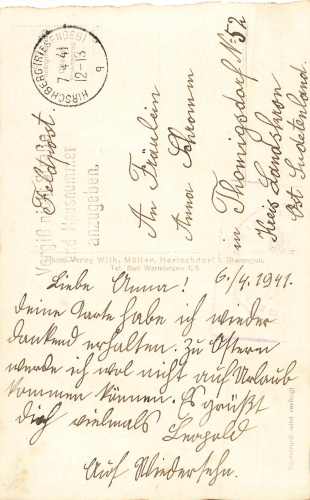 HIRSCHBERG (RIESENGEB)
7.4.41
12-13
q
Feldpost
Straße
und Hausnummer
anzugeben.
An Fräulein
Anna Schromm
in Thomigsdorf No: 52
Kreis Landskron
Ost Sudetenland.
Photo-Verlag Wilh. Müller, Herischdorf i. Riesengeb.
Tel. Bad Warmbrunn 175
Nachdruck wird verfolgt
Liebe Anna! 6./4. 1941.
deine Karte habe ich wieder
dankend erhalten. Zu Ostern
werde ich wol nicht auf Urlaub
kommen können. Es grüßt
dich vielmals Leopold
Auf Wiedersehn.